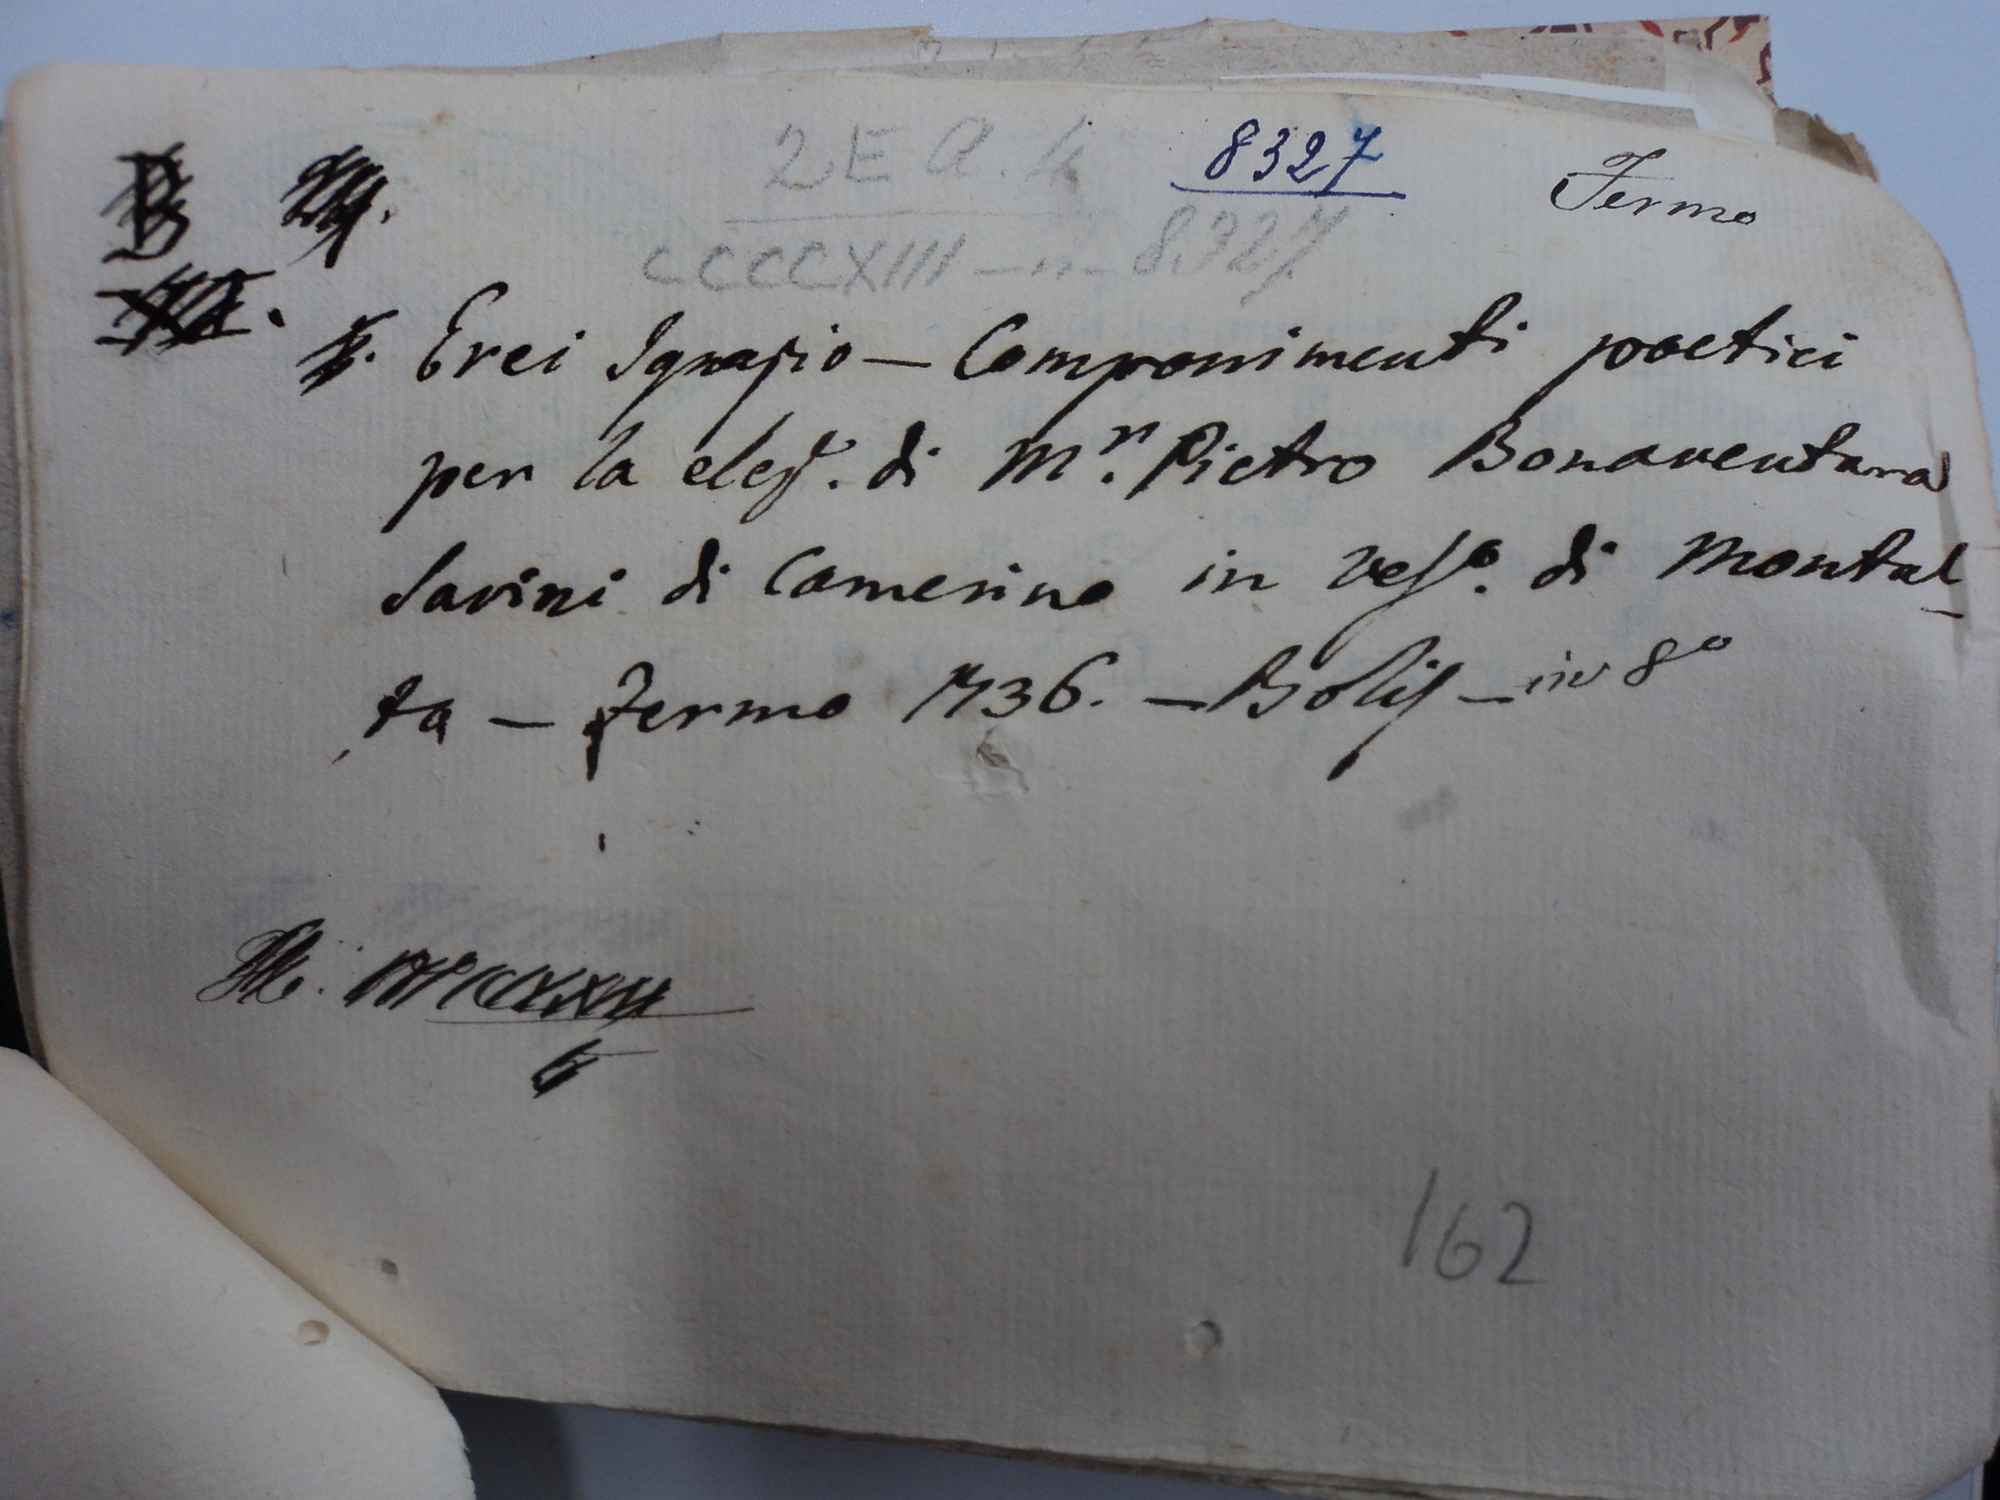 2 E a. 4 8327 Fermo
CCCCXIII - n. 8327
Erei Ignazio - Componimenti poetici
per la elez.e di Mn. Pietro Bonaventura
Savini di Camerino in vesc.o di Montal-
ta - Fermo 1736. - Bolis - in 8o
162